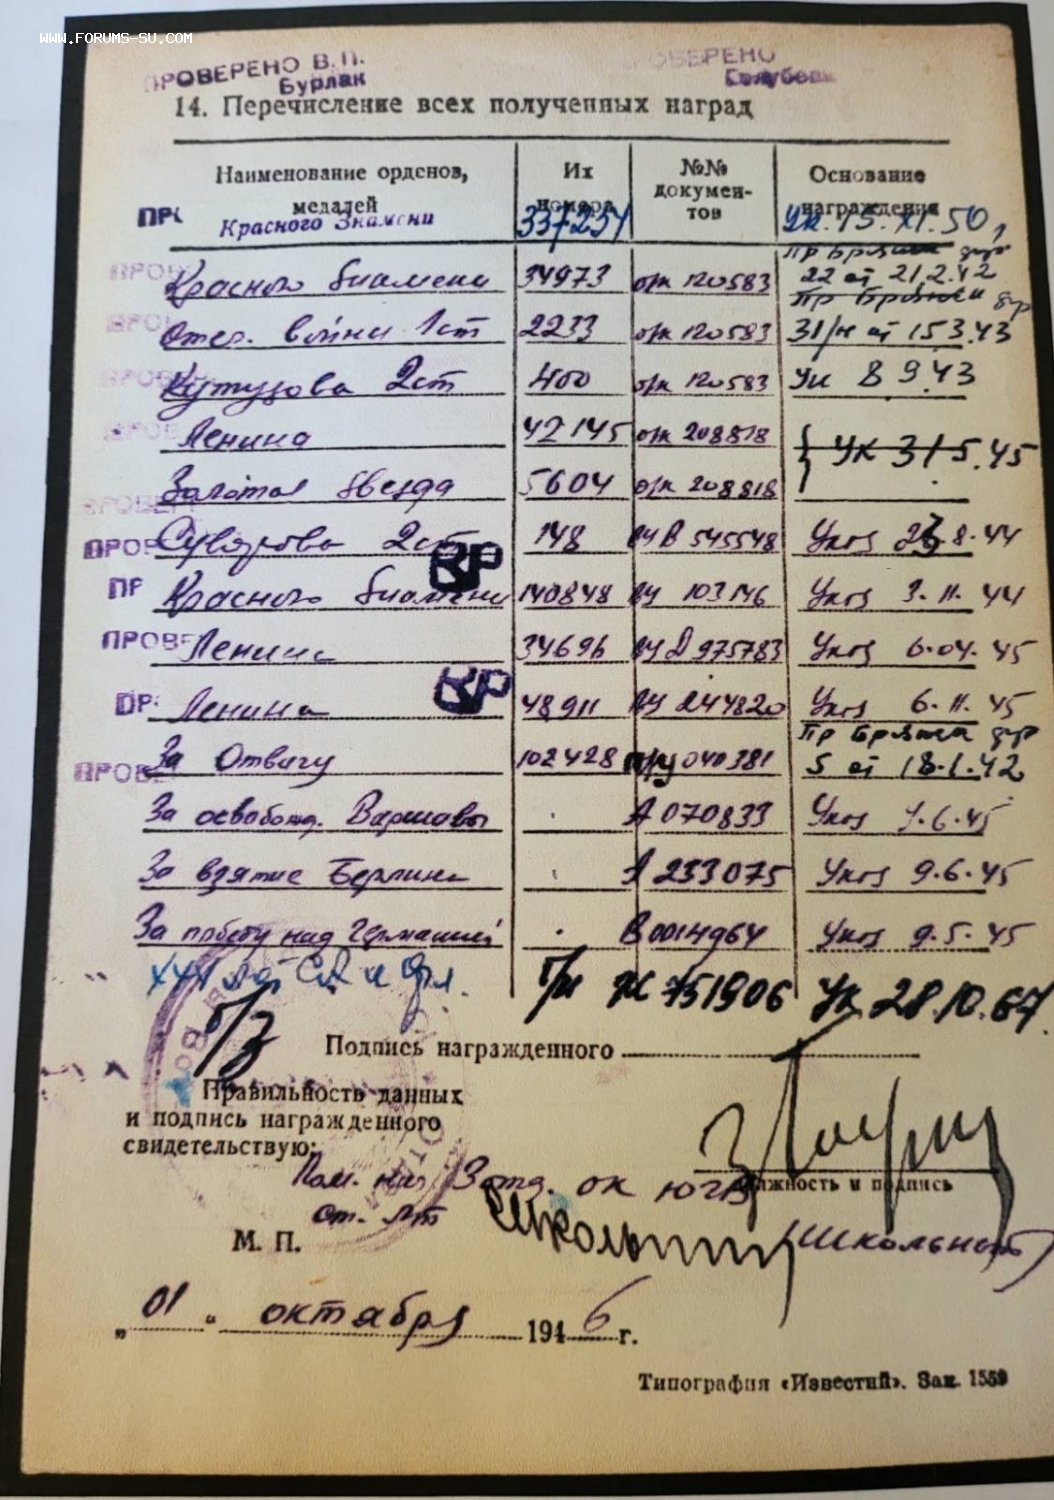 WWW.FORUMS-SU.COM
ПРОВЕРЕНО В.П.
Бурлак
14. Перечисление всех полученных наград
Наименование орденов, медалей Их номера №№ докумен-тов Основание награждения
Красного Знамени 337251 Ук. 15. XI. 50,
Пр Брянск
Красного Знамени 34973 орк 120583 22 от 21.2.42
Пр Брянск
Отеч. войны 1 ст 2233 орк 120583 31/н от 15 3.43
Кутузова 2 ст 400 орк 120583 Ук 8 9.43
Ленина 42145 орк 208818
Ук 31 5.45
Золотая Звезда 5604 орк 208818
Суворова 2 ст 148 В 545548 Указ 23.8.44
ВР
Красного Знамени 140848 103146 Указ 3.11.44
ПРОВЕ Ленина 34696 Д 975783 Указ 6.04.45
ВР
Ленина 48911 244820 Указ 6.11.45
Пр Брянск
За Отвагу 102428 040381 5 от 18.1.42
За освобожд. Варшавы А 070833 Указ 9.6.45
За взятие Берлина А 233075 Указ 9.6.45
За победу над Германией В 0014964 Указ 9.5.45
XXX лет СА и Фл. б/н 751906 Ук 28.10.67.
б/з
Подпись награжденного
Правильность данных
и подпись награжденного
свидетельствую:
Пом. нач 3 отд. ОК ЮГВ
должность и подпись
ст. л-т
Школьный (Школьный)
М. П.
„01“ октября 1946 г.
Типография «Известий». Зак. 1559